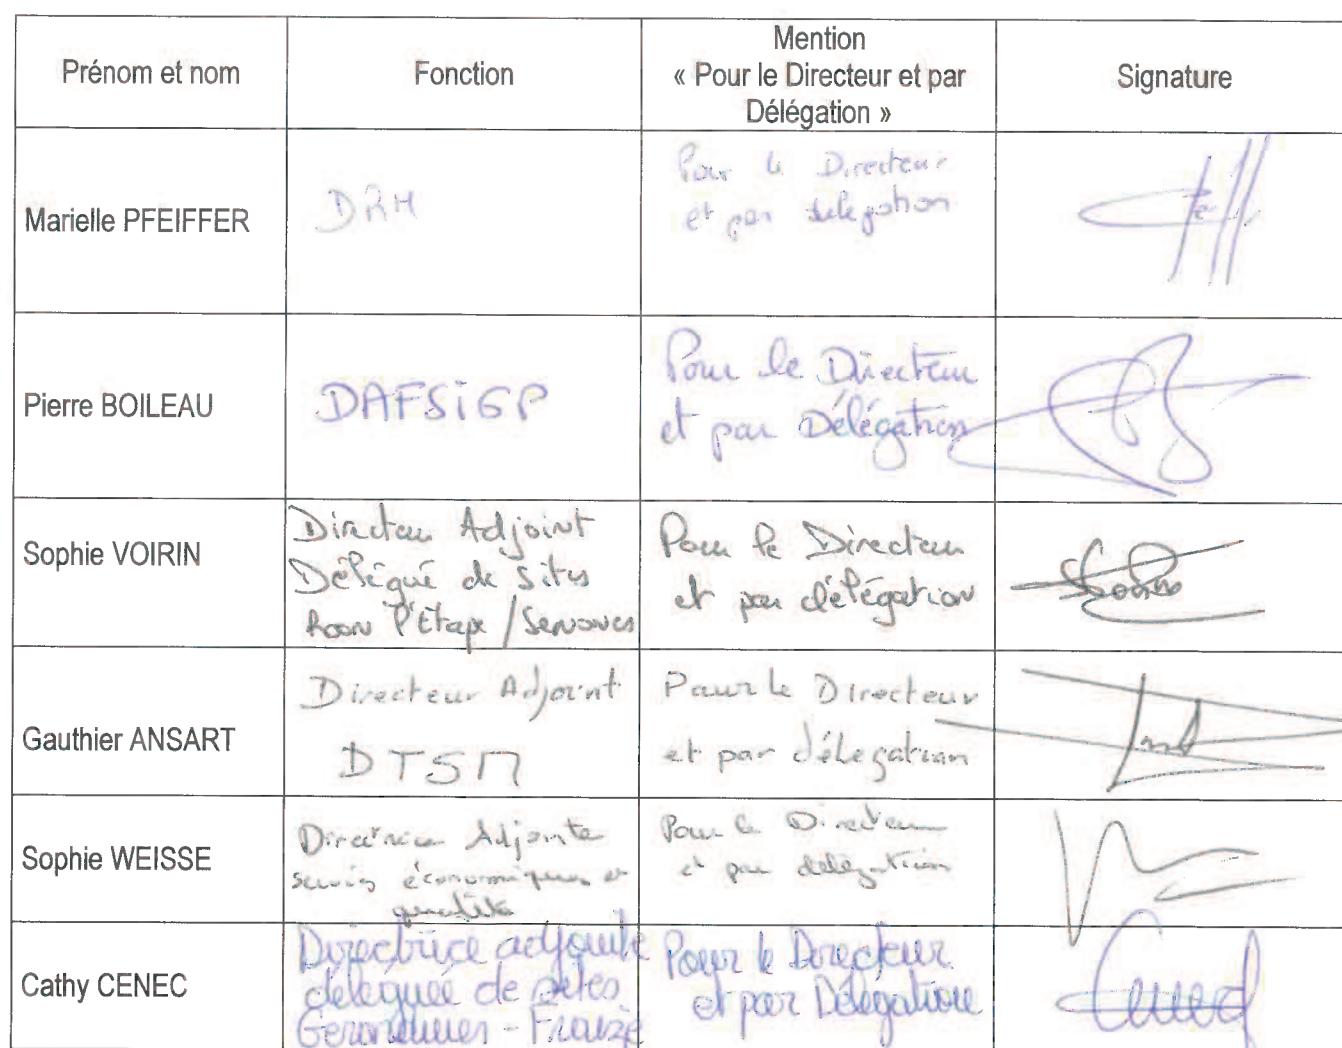 Prénom et nom
Fonction
Mention
« Pour le Directeur et par
Délégation »
Signature
Marielle PFEIFFER
DRH
Pour le Directeur
et par délégation
Pierre BOILEAU
DAFSiGP
Pour le Directeur
et par Délégation
Sophie VOIRIN
Directeur Adjoint
Délégué de sites
Raon l'Etape / Senones
Pour le Directeur
et par délégation
Gauthier ANSART
Directeur Adjoint
DTSM
Pour le Directeur
et par délégation
Sophie WEISSE
Directrice Adjointe
services économiques et
qualité
Pour le Directeur
et par délégation
Cathy CENEC
Directrice adjointe
déléguée de sites
Gerardmer - Fraize
Pour le Directeur
et par Délégation
Cenec